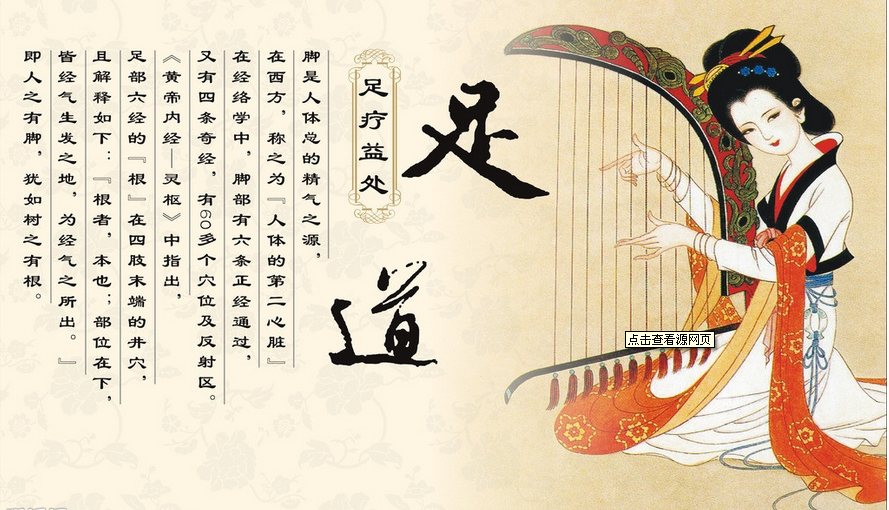 足道
足疗益处
脚是人体总的精气之源，
在西方，称之为『人体的第二心脏』
在经络学中，脚部有六条正经通过，
又有四条奇经，有60多个穴位及反射区。
《黄帝内经—灵枢》中指出，
足部六经的『根』在四肢末端的井穴，
且解释如下：『根者，本也；部位在下，
皆经气生发之地，为经气之所出。』
即人之有脚，犹如树之有根。
点击查看源网页